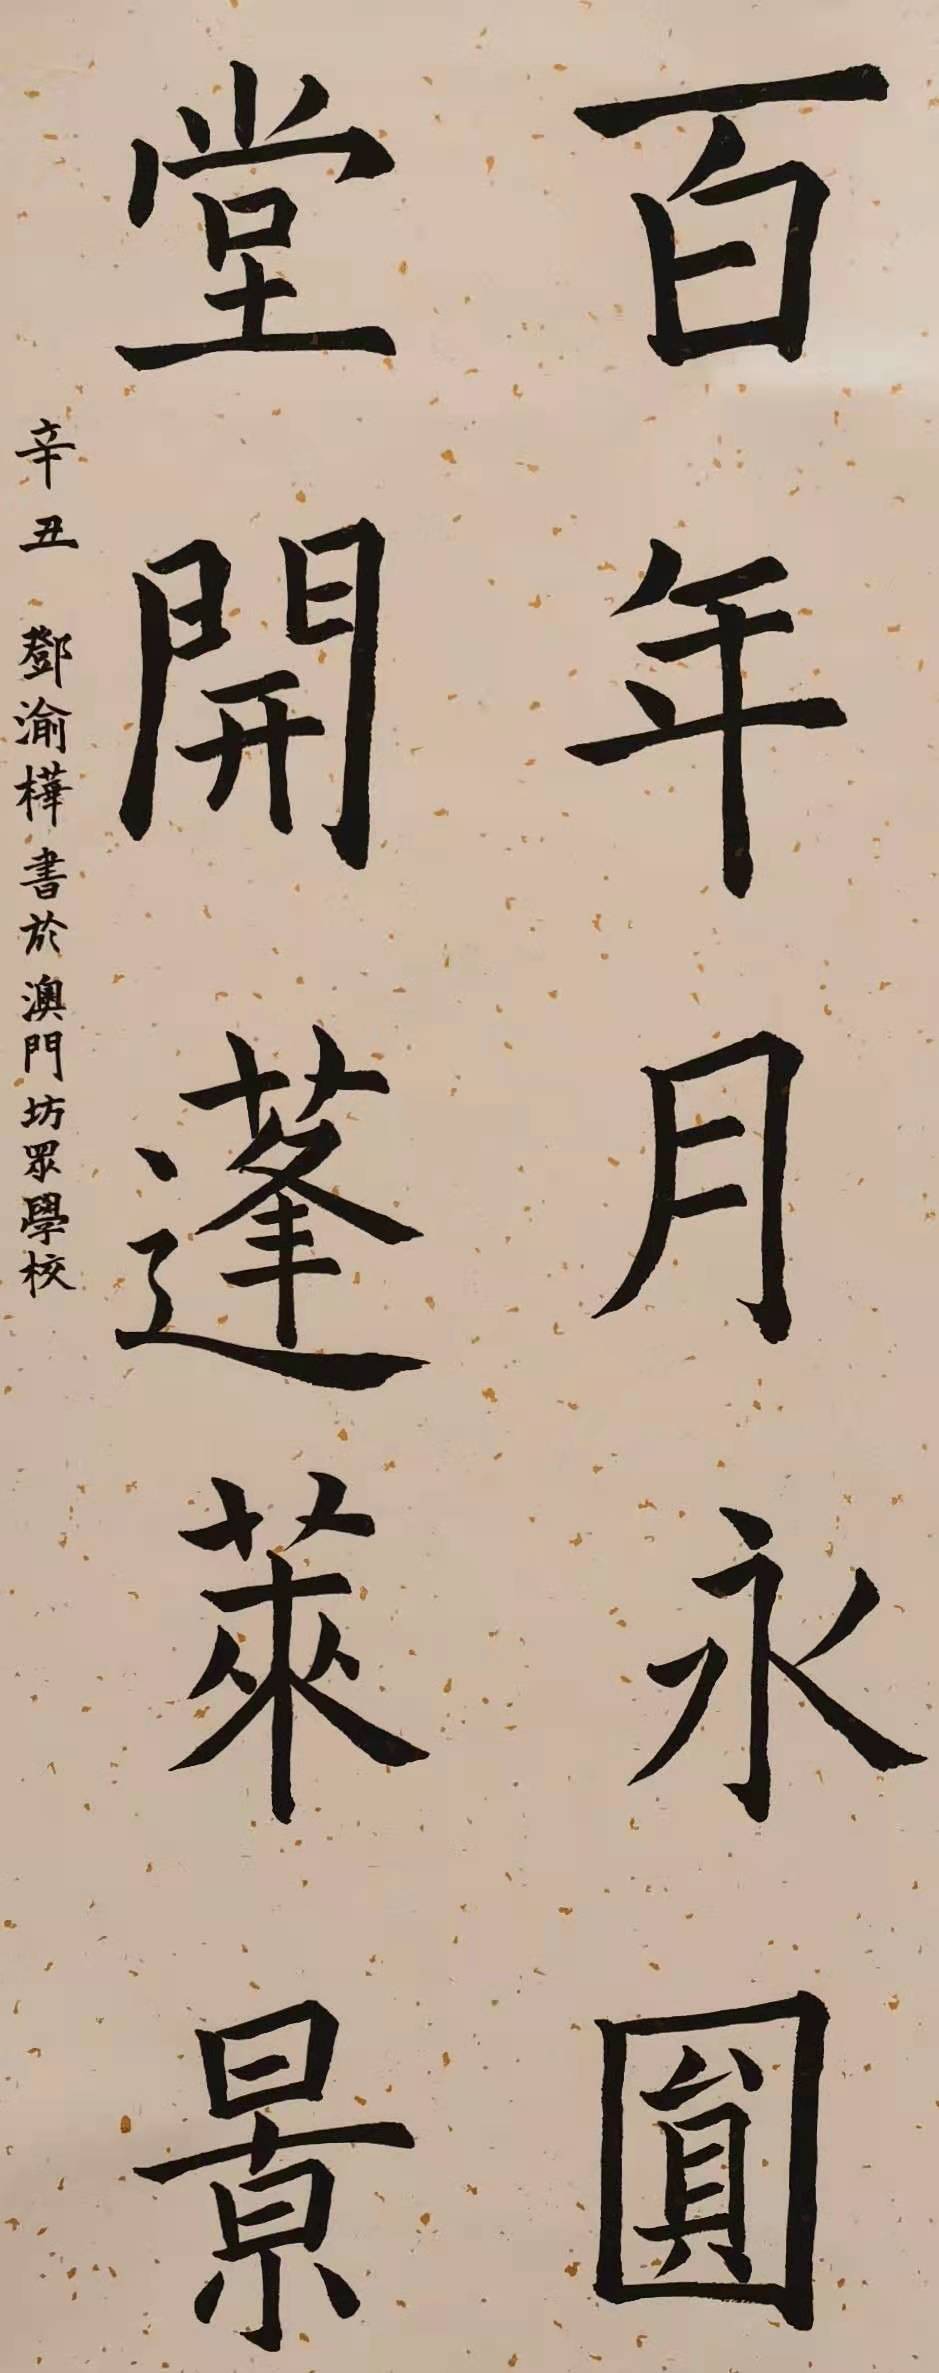 百年月永圓
堂開蓬萊景
辛丑 鄧渝樺書於澳門坊眾學校